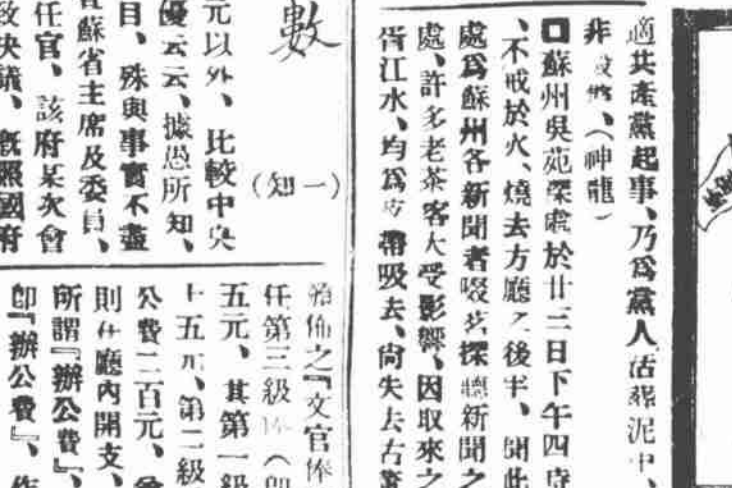 適共產黨起事、乃爲黨人活葬泥中、
非
（神龍）
口蘇州吳苑深處於廿三日下午四時
、不戒於火、燒去方廳之後半、聞此
處爲蘇州各新聞者啜茗探聽新聞之
處、許多老茶客大受影響、因取來之
胥江水、均爲皮帶吸去、尙失去古
數
（一知）
元以外、比較中央
優云云、據愚所知、
目、殊與事實不盡
蘇省主席及委員、
任官、該府某次會
致決議、概照國府
俸之『文官俸
任第三級俸（卽
五元、其第一級
十五元、第二級
公費二百元、
則在廳內開支、
所謂『辦公費』、
卽『辦公費』、作